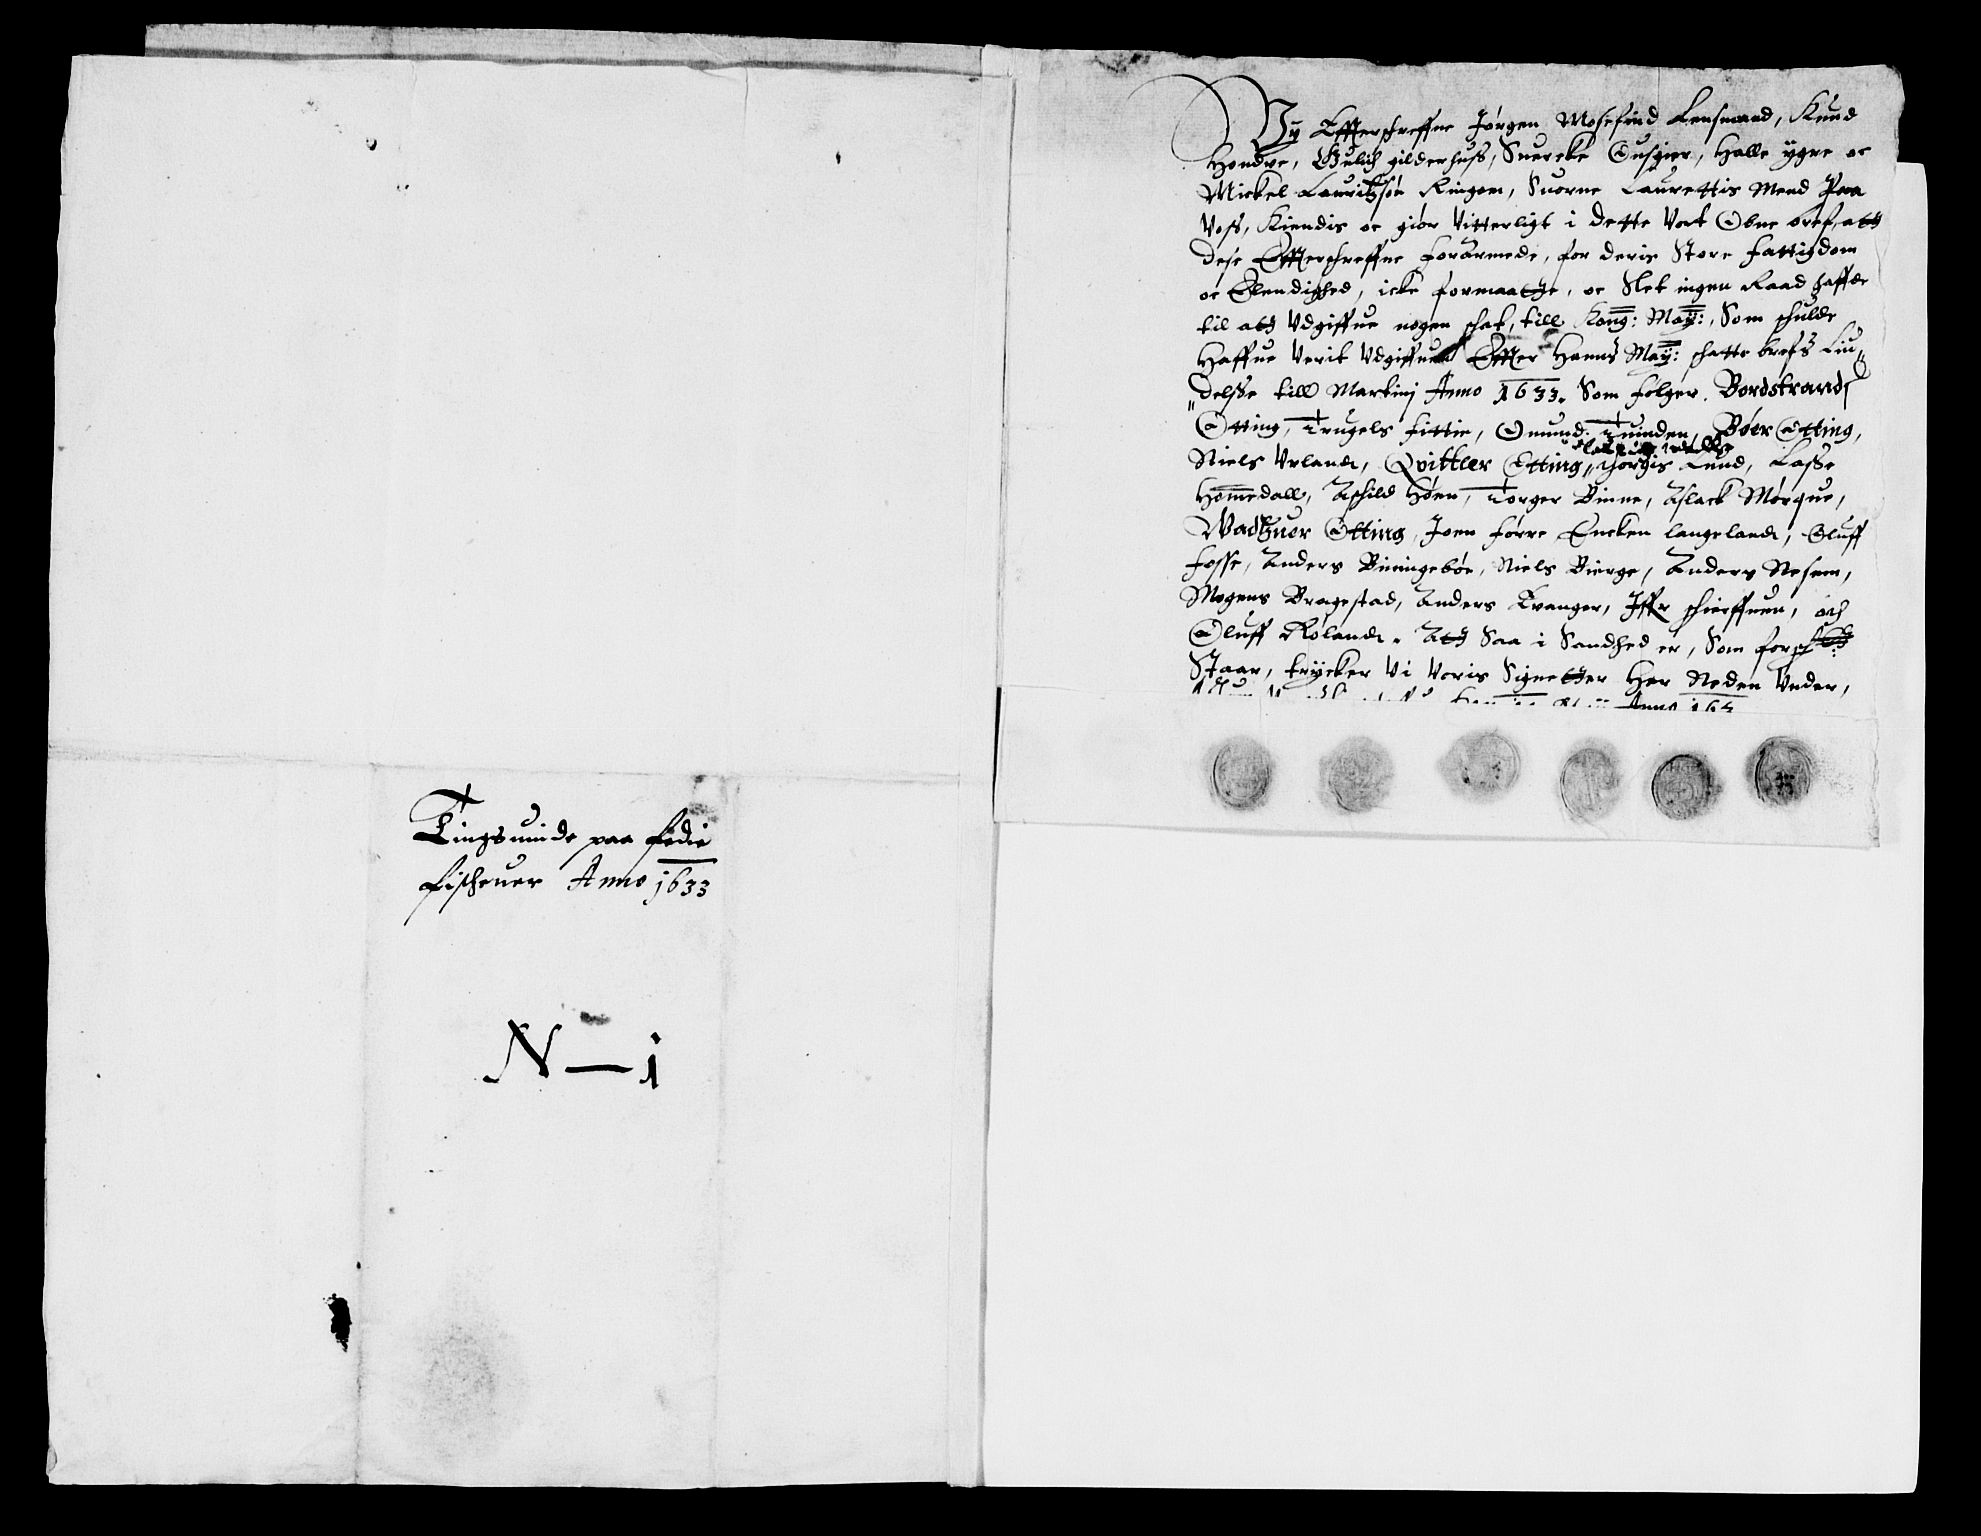 Tingsuinde paa fedie
fischeuer Anno 1633
N — 1
Vy Effterschreffne Jórgen Mosefind Lensmand, Knud
Hondve, Gulich gilderhuss, Suercke Gusgier, Halle ygre oc
Mickel Lauritzsón Ringem, Suorne Laurettis Mend Paa
Voss, Kiendis oc giór Vitterligt i dette Vort Obne bref, att
dese Effterschreffne forarmede, for deris Store fattigdom
oc Elendighed, icke formaatte, oc Slet ingen Raad haffde
til att Vdgiffue nogen schat, till Kong: May:, Som schulde
Haffue Verit Vdgiffuen Effter Hanns May: schatte brefs Liu„
„delsse till Martinj Anno 1633. Som folger. Bordstrands
Otting, Trugels fittie, Omund Tuinden, Bóer Otting,
Niels Vrlande, Qvittler Otting, Jorgis Lund, Lasse
Hommedall, Aschild Hóen, Torger Binne, Aslack Mórque,
Wadtzuer Otting, Joen fórre Encken langelande, Oluff
fosse, Anders Biningebóe, Niels Bierge, Anders Nesem,
Mogens Bragestad, Anders Tvanger, Iffr schierffuen, och
Oluff Rólande. Att Saa i Sandhed er, Som forsch:
Staar, trycker Vi Voris Signetter Her Neden Vnder,
Anno